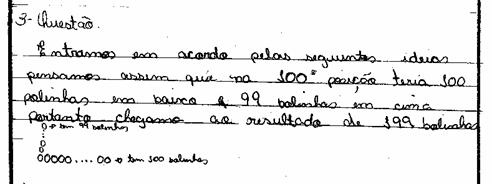 3- Questão.
Entramos em acordo pelas seguintes ideias
pensamos assim que na 100ª posição teria 100
bolinhas em baixo e 99 bolinhas em cima
portanto chegamo ao resultado de 199 bolinhas
0 → tem 99 bolinhas
00000....00 → tem 100 bolinhas